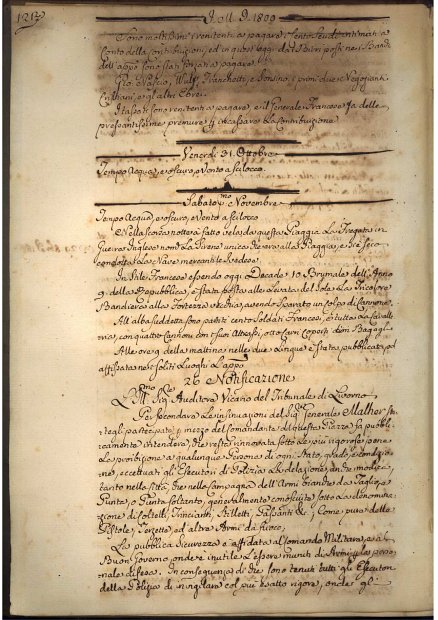 1213
I. M. I. 1800
Sono moltissimi renitenti a pagare i
Conto della contribuzioni, ed in quest'oggi
dell'app. sono stati forzati a pagare
Franchetti, e Sonsino i primi due Negozianti
Cristiani, e gl'altri Ebrei.
I tassati sono renitenti a pagare, e il Generale Francese fa delle
pressantissime premure incassare la Contribuzione.
Venerdì 31. Ottobre
Tempo Acqua, e oscuro, e Vento a scilocco.
Sabato p.mo Novembre
Tempo Acqua, e oscuro, e Vento a scilocco
Nella scorsa notte à fatto vela da questa Piaggia La Fregata in
Guerra Inglese nom.a La Sirene unica che era alla Piaggia, e si è
condotta La Nave mercantile svedese.
In stile Francese essendo oggi Decade 10. Brumale dell'Anno
9. della Repubblica, è stata posta alla Levata del Sole La Tricolore
Bandiera alla Fortezza vecchia, avendo sparato un colpo di Cannone.
All'alba suddetta sono partiti cento Soldati Francesi, e tutta La Cavalle-
ria, con quattro Cannoni con i suoi Attrezzi, otto Carri Coperti Bagagli
Alle ore 9. della mattina nelle due Lingue è stata pubblicata, ed
affissata nei soliti Luoghi L'app.
26 Notificazione
L'Ill.mo Sig.re Auditore Vicario del Tribunale di Livorno
Per secondare Le insinuazioni del Sig.re Generale Malher
partecipate p mezzo del Comandante di questa Piazza fa pubbli-
camente intendere, che resta rinnovata sotto Le più rigorose pene
La proibizione a qualunque Persona di ogni stato, grado, e condizio-
ne, eccettuati gli Esecutori di Polizia La delazione, anche modica
tanto nella città, che nella campagna dell'Armi bianche da Taglio, e
Punta, o Punta soltanto, generalmente conosciute sotto La denomina-
zione di Coltelli, Trincianti, Stiletti, Passanti &, Come pure delle
Pistole, Terzette, ed altre Armi da fuoco;
La pubblica Sicurezza è affidata al Comando Militare, e al
Buon Governo, onde è inutile L'essere muniti di Armi p La perso-
nale difesa. In conseguenza di che sono tenuti tutti gli Esecutori
della Polizia di invigilare col più esatto rigore, onde gli